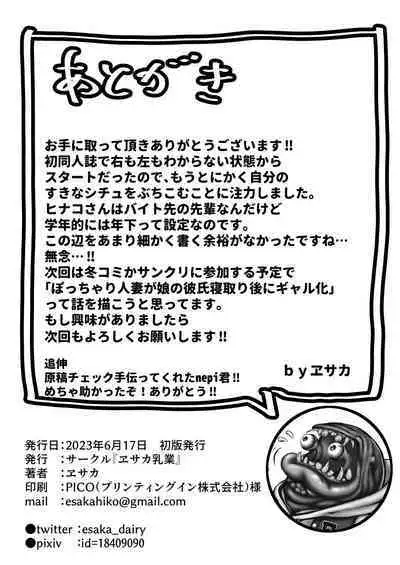 あとがき
お手に取って頂きありがとうございます!!
初同人誌で右も左もわからない状態から
スタートだったので、もうとにかく自分の
すきなシチュをぶちこむことに注力しました。
ヒナコさんはバイト先の先輩なんだけど
学年的には年下って設定なのです。
この辺をあまり細かく書く余裕がなかったですね…
無念…!!
次回は冬コミかサンクリに参加する予定で
「ぽっちゃり人妻が娘の彼氏寝取り後にギャル化」
って話を描こうと思ってます。
もし興味がありましたら
次回もよろしくお願いします!!
追伸
原稿チェック手伝ってくれたnepi君!!
めちゃ助かったぞ!ありがとう!!
byヱサカ
発行日:2023年6月17日 初版発行
発行 :サークル『ヱサカ乳業』
著者 :ヱサカ
印刷 :PICO(プリンティングイン株式会社)様
mail :esakahiko@gmail.com
●twitter :esaka_dairy
●pixiv :id=18409090